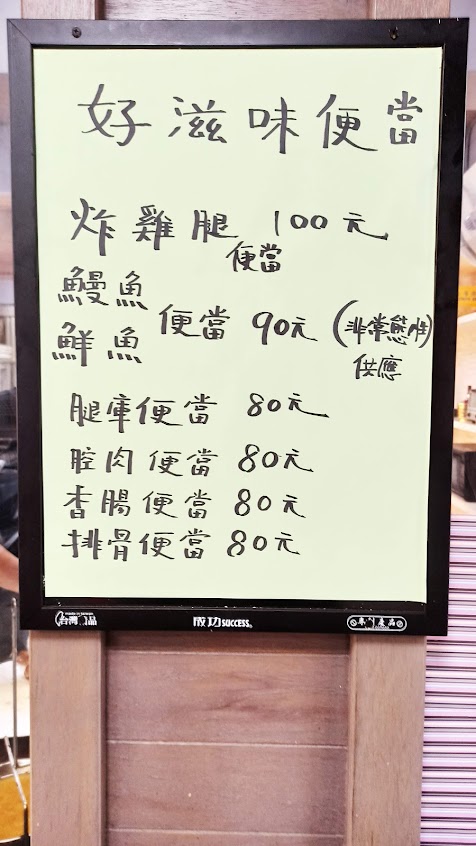 好滋味便當
炸雞腿 100元
便當
鰻魚
鮮魚
便當 90元 (非常態性)
供應
腿庫便當 80元
腔肉便當 80元
香腸便當 80元
排骨便當 80元
台灣 品
成功 SUCCESS®